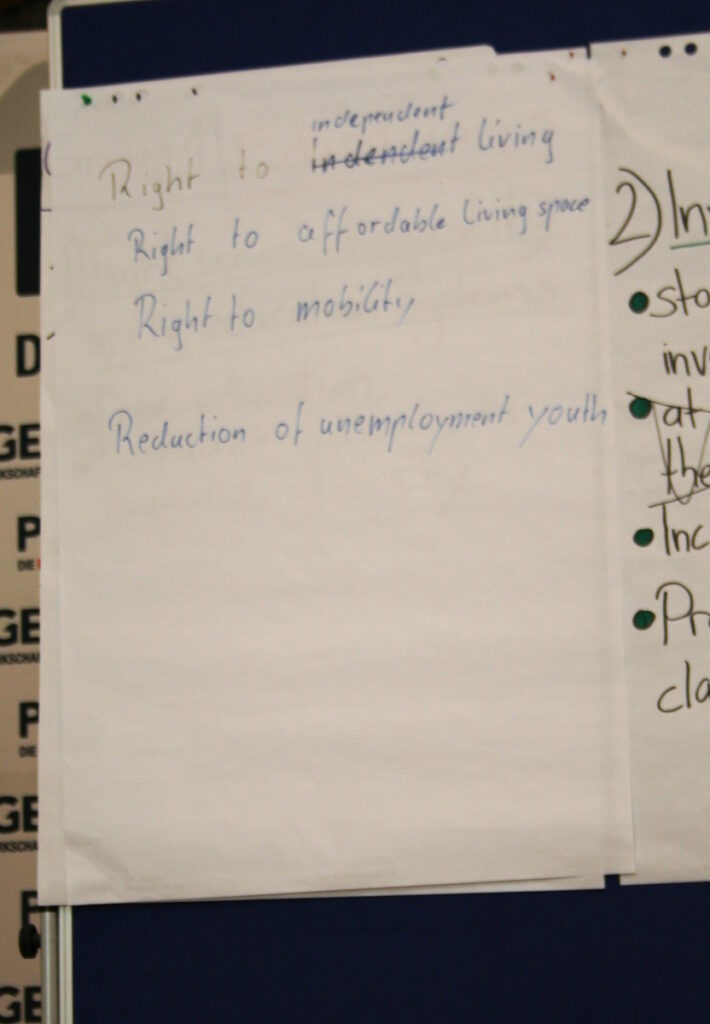 independent
Right to indendent living
Right to affordable living space
Right to mobility
Reduction of unemployment youth
2) In
• sto
inv
• at
the
• Inc
• Pr
cla
D
GE
P
DIE
GE
P
DIE
GE
P
GE